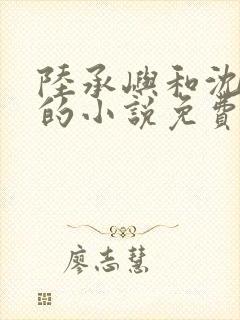 陸承嶼和沈
的小說免費
廖志慧